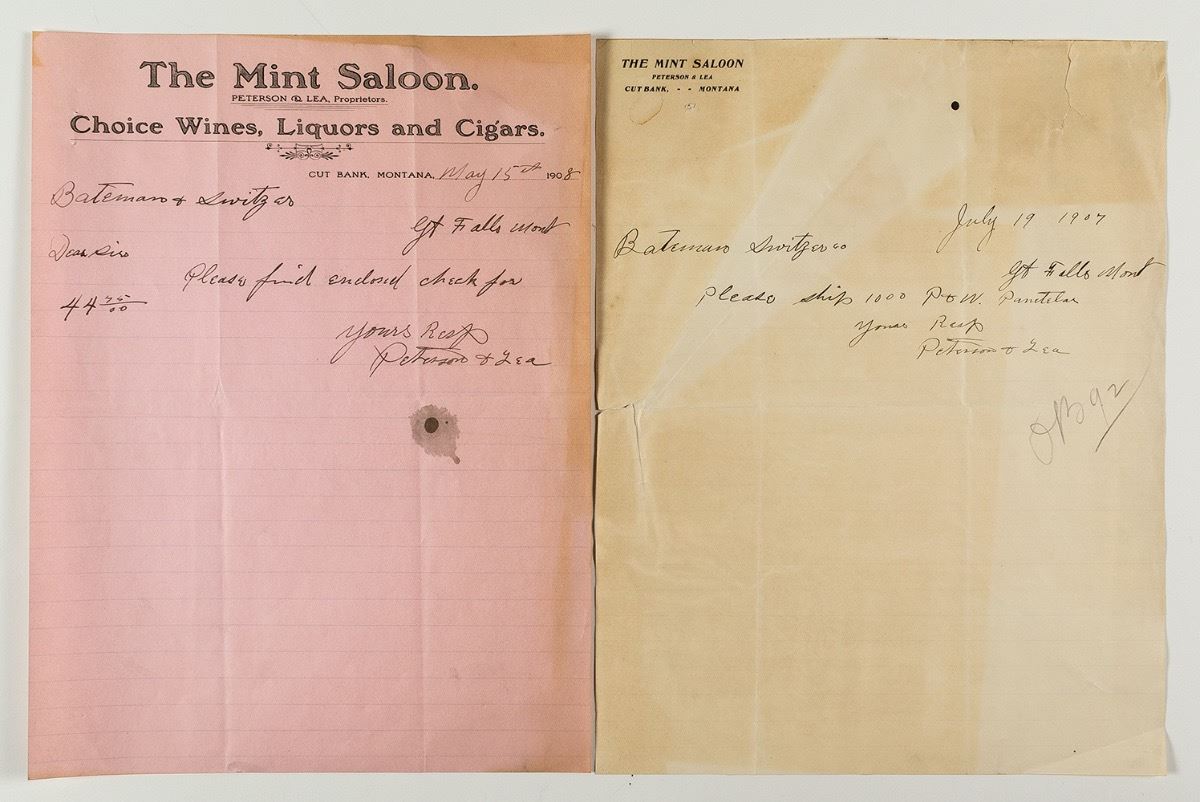 The Mint Saloon.
PETERSON & LEA, Proprietors.
Choice Wines, Liquors and Cigars.
CUT BANK, MONTANA, May 15th 1908
Bateman & Switzer
Gt Falls Mont
Dear Sirs
Please find enclosed check for
44 75/00
Yours Resp
Peterson & Lea
THE MINT SALOON
PETERSON & LEA
CUT BANK, - - MONTANA
July 19 1907
Bateman Switzer co
Gt Falls Mont
Please ship 1000 P & W. Panetelas
Yours Resp
Peterson & Lea